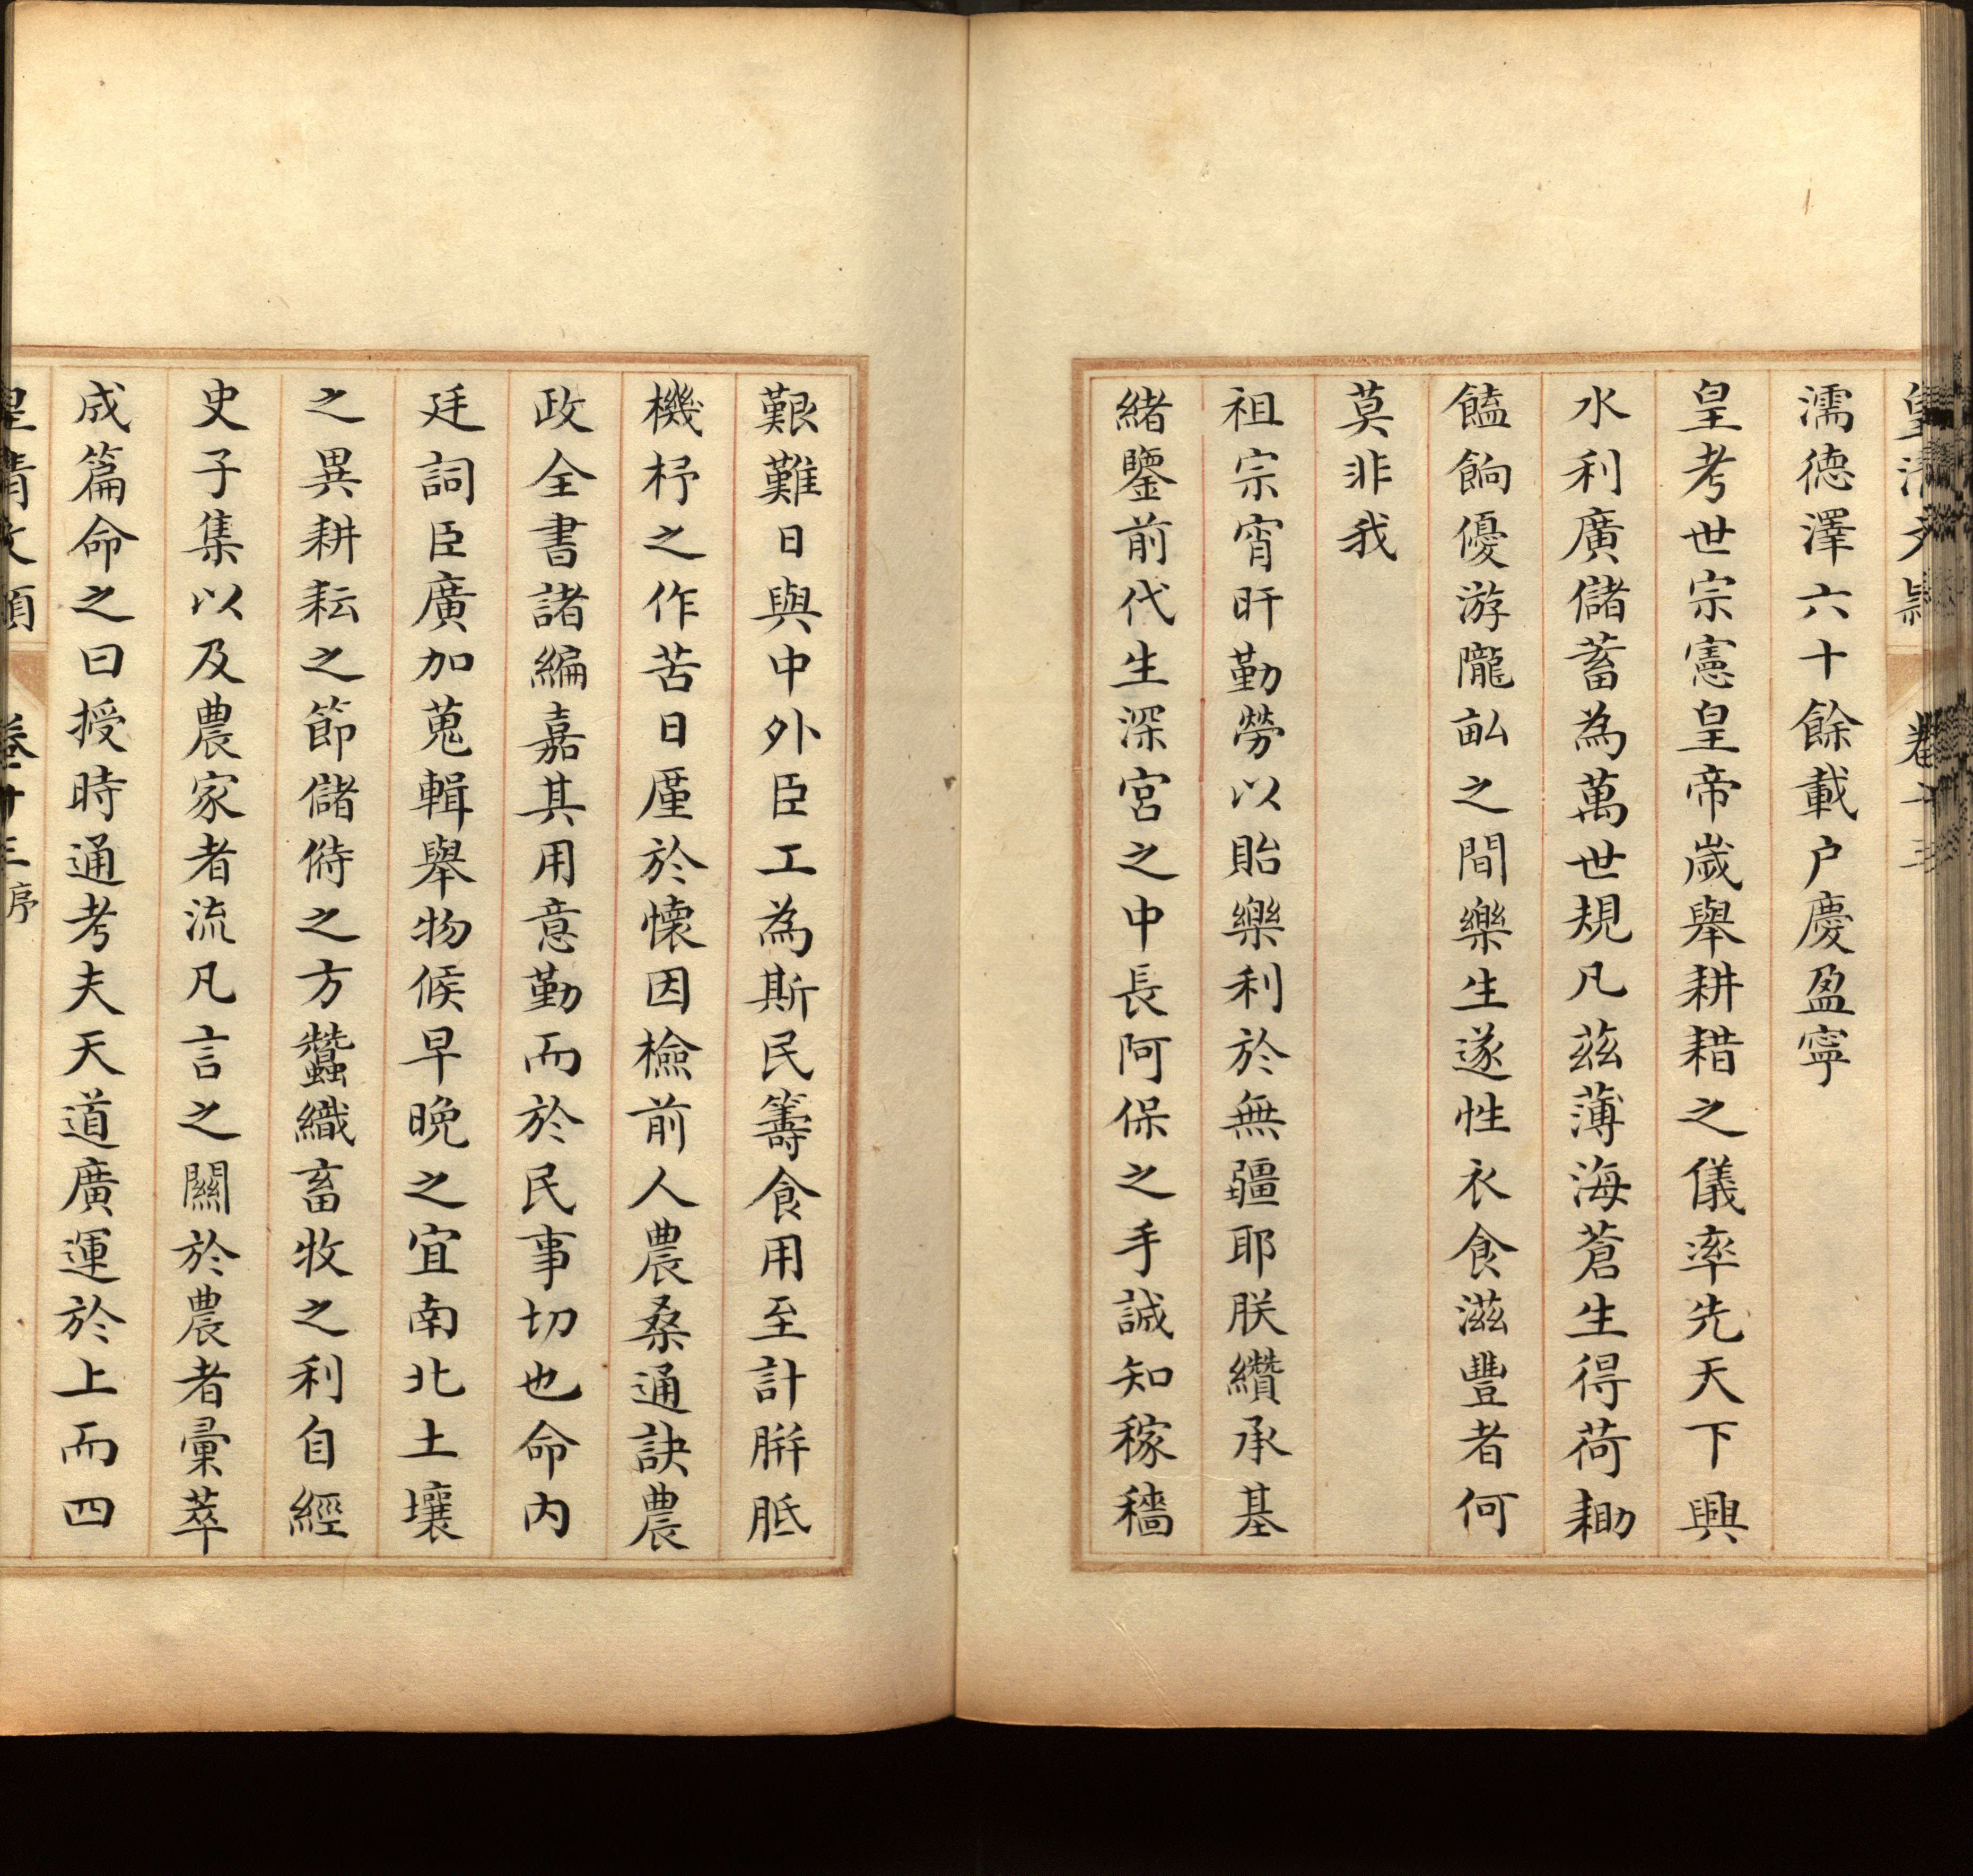 皇清文穎 卷十三
濡德澤六十餘載户慶盈寧
皇考世宗憲皇帝歲舉耕耤之儀率先天下興
水利廣儲蓄為萬世規凡茲薄海蒼生得荷耡
饁餉優游隴畝之間樂生遂性衣食滋豐者何
莫非我
祖宗宵旰勤勞以貽樂利於無疆耶朕纘承基
緒鑒前代生深宮之中長阿保之手誠知稼穡
艱難日與中外臣工為斯民籌食用至計胼胝
機杼之作苦日厪於懷因檢前人農桑通訣農
政全書諸編嘉其用意勤而於民事切也命内
廷詞臣廣加蒐輯舉物候早晚之宜南北土壤
之異耕耘之節儲偫之方蠶織畜牧之利自經
史子集以及農家者流凡言之關於農者彙萃
成篇命之曰授時通考夫天道廣運於上而四
皇清文穎 卷十三 序